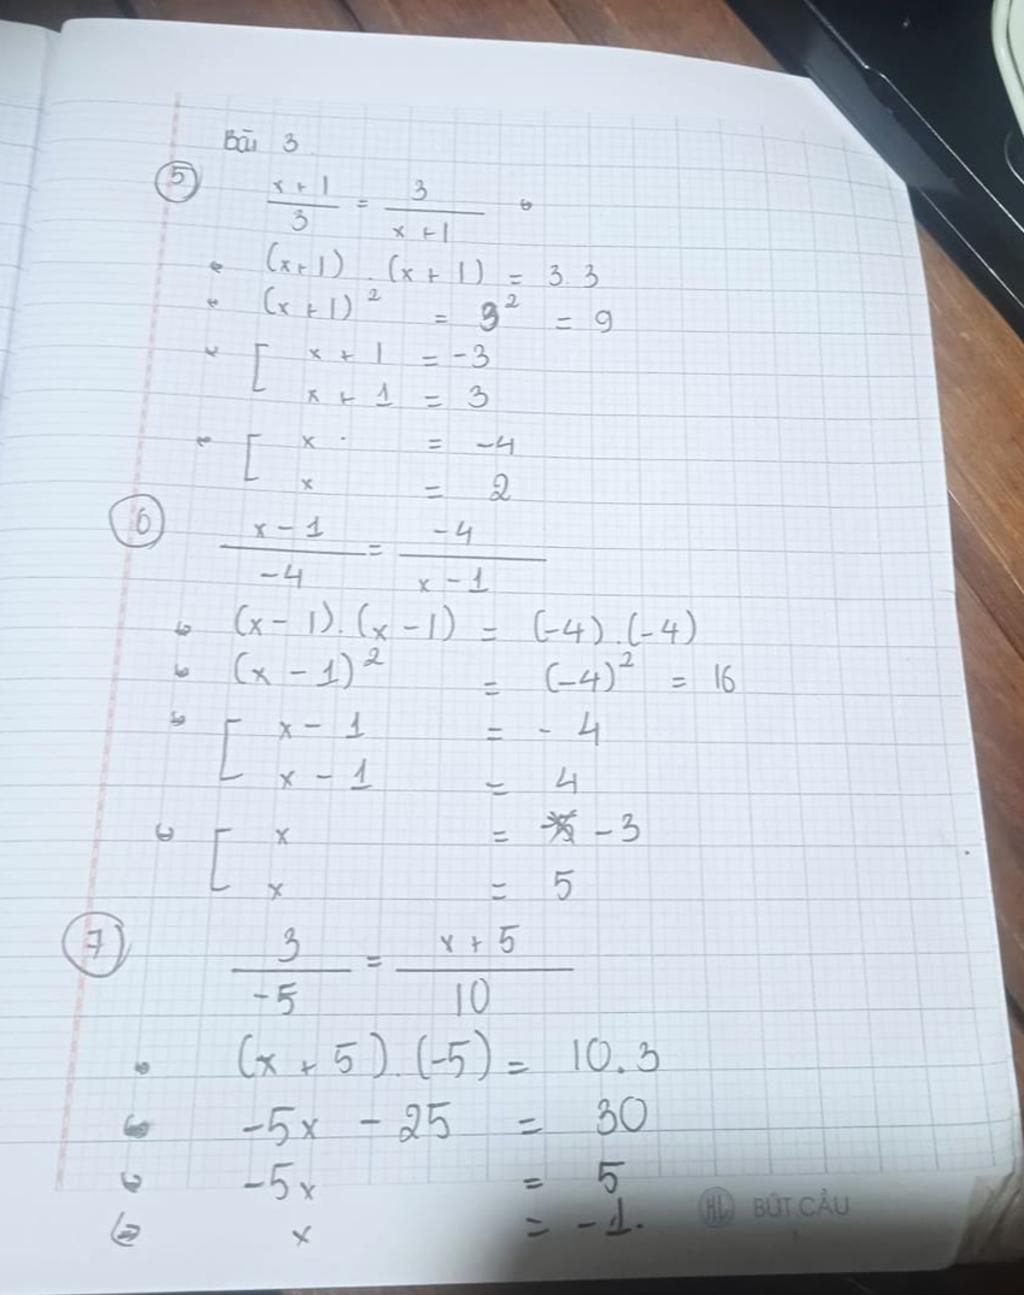 Bài 3
5
x+1/3 = 3/x+1
(x+1).(x+1) = 3.3
(x+1)² = 3² = 9
[ x+1 = -3
x+1 = 3
[ x = -4
x = 2
6
x-1/-4 = -4/x-1
(x-1).(x-1) = (-4).(-4)
(x-1)² = (-4)² = 16
[ x-1 = -4
x-1 = 4
[ x = -3
x = 5
7
3/-5 = x+5/10
(x+5).(-5) = 10.3
-5x - 25 = 30
-5x = 5
x = -1.
HL BÚT CẦU